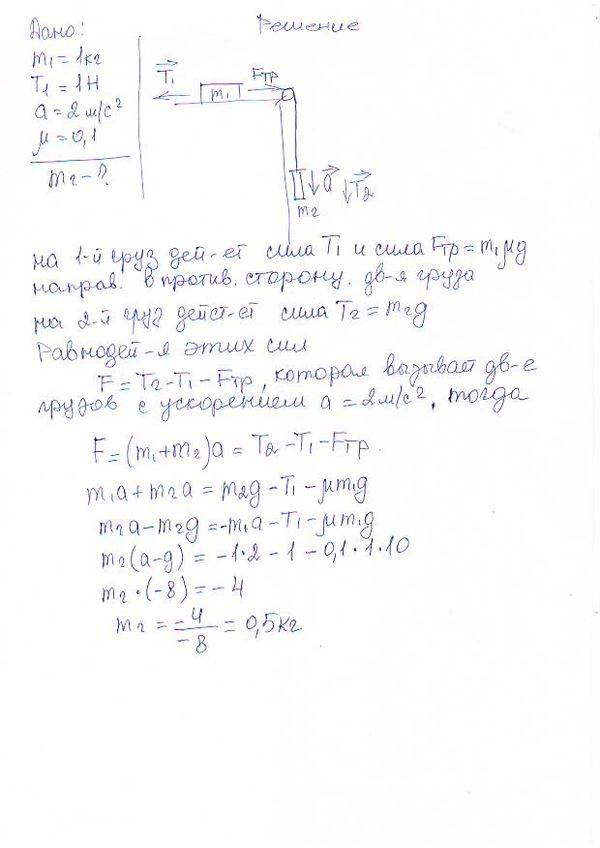 Дано:
Решение
m₁ = 1кг
T₁ = 1Н
a = 2 м/с²
μ = 0,1
m₂ - ?
T₁
Fтр
m₁
a
T₂
m₂
на 1-й груз дей-ет сила T₁ и сила Fтр = m₁μg
направ. в против. сторону. дв-я груза
на 2-й груз дейст-ет сила T₂ = m₂g
Равнодей-я этих сил
F = T₂ - T₁ - Fтр, которая вызывает дв-е
грузов с ускорением a = 2м/с², тогда
F = (m₁ + m₂)a = T₂ - T₁ - Fтр.
m₁a + m₂a = m₂g - T₁ - μm₁g
m₂a - m₂g = -m₁a - T₁ - μm₁g
m₂(a - g) = -1·2 - 1 - 0,1·1·10
m₂·(-8) = -4
m₂ = -4/-8 = 0,5кг